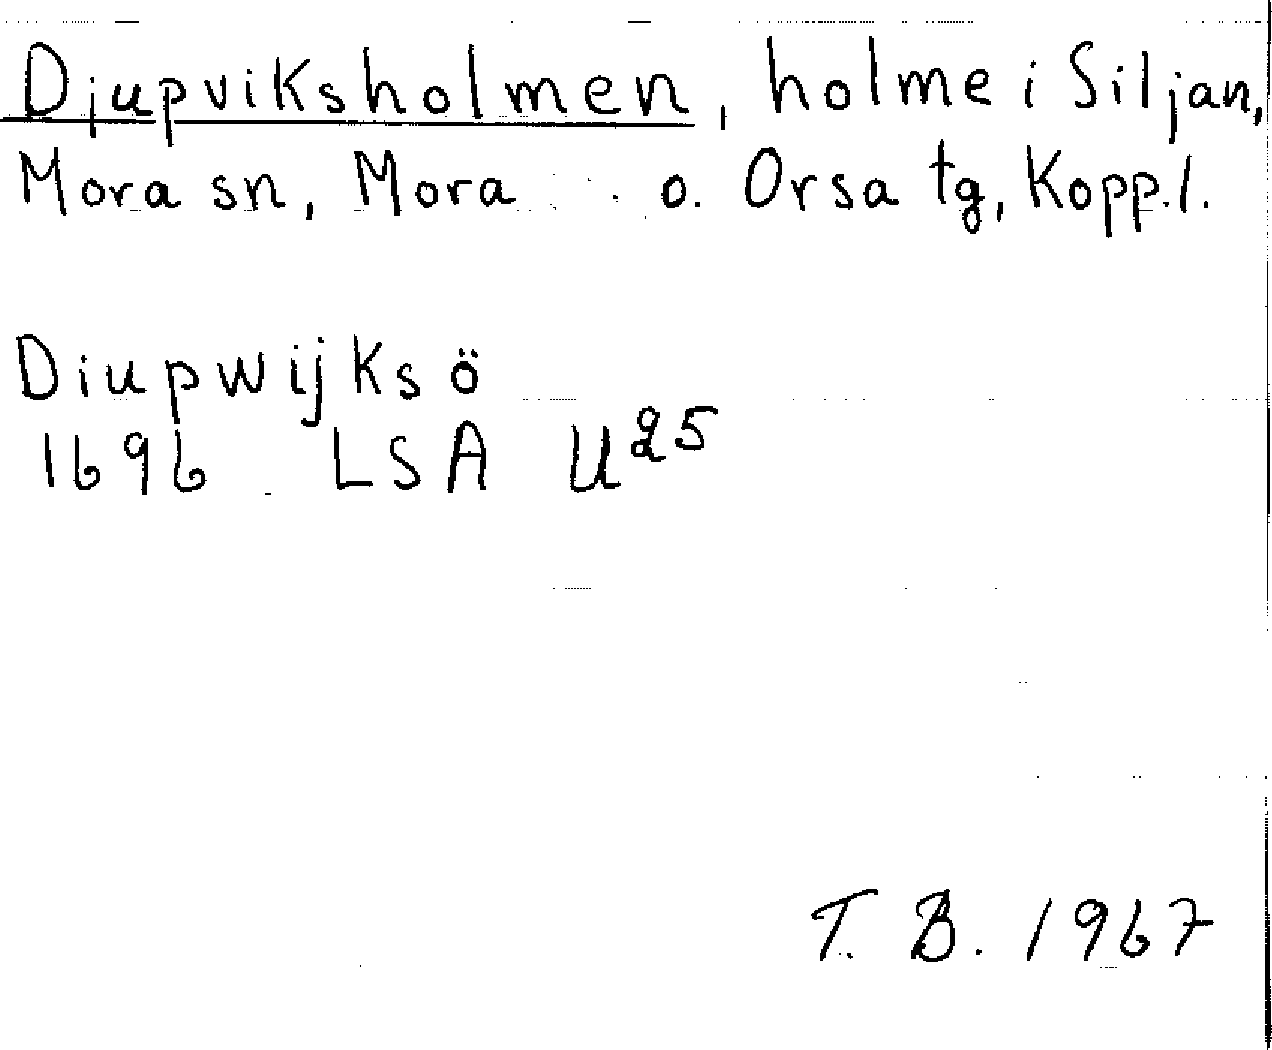 Djupviksholmen, holme i Siljan,
Mora sn, Mora o. Orsa tg, Kopp.l.
Diupwijksö
1696 LSA U25
T. B. 1967